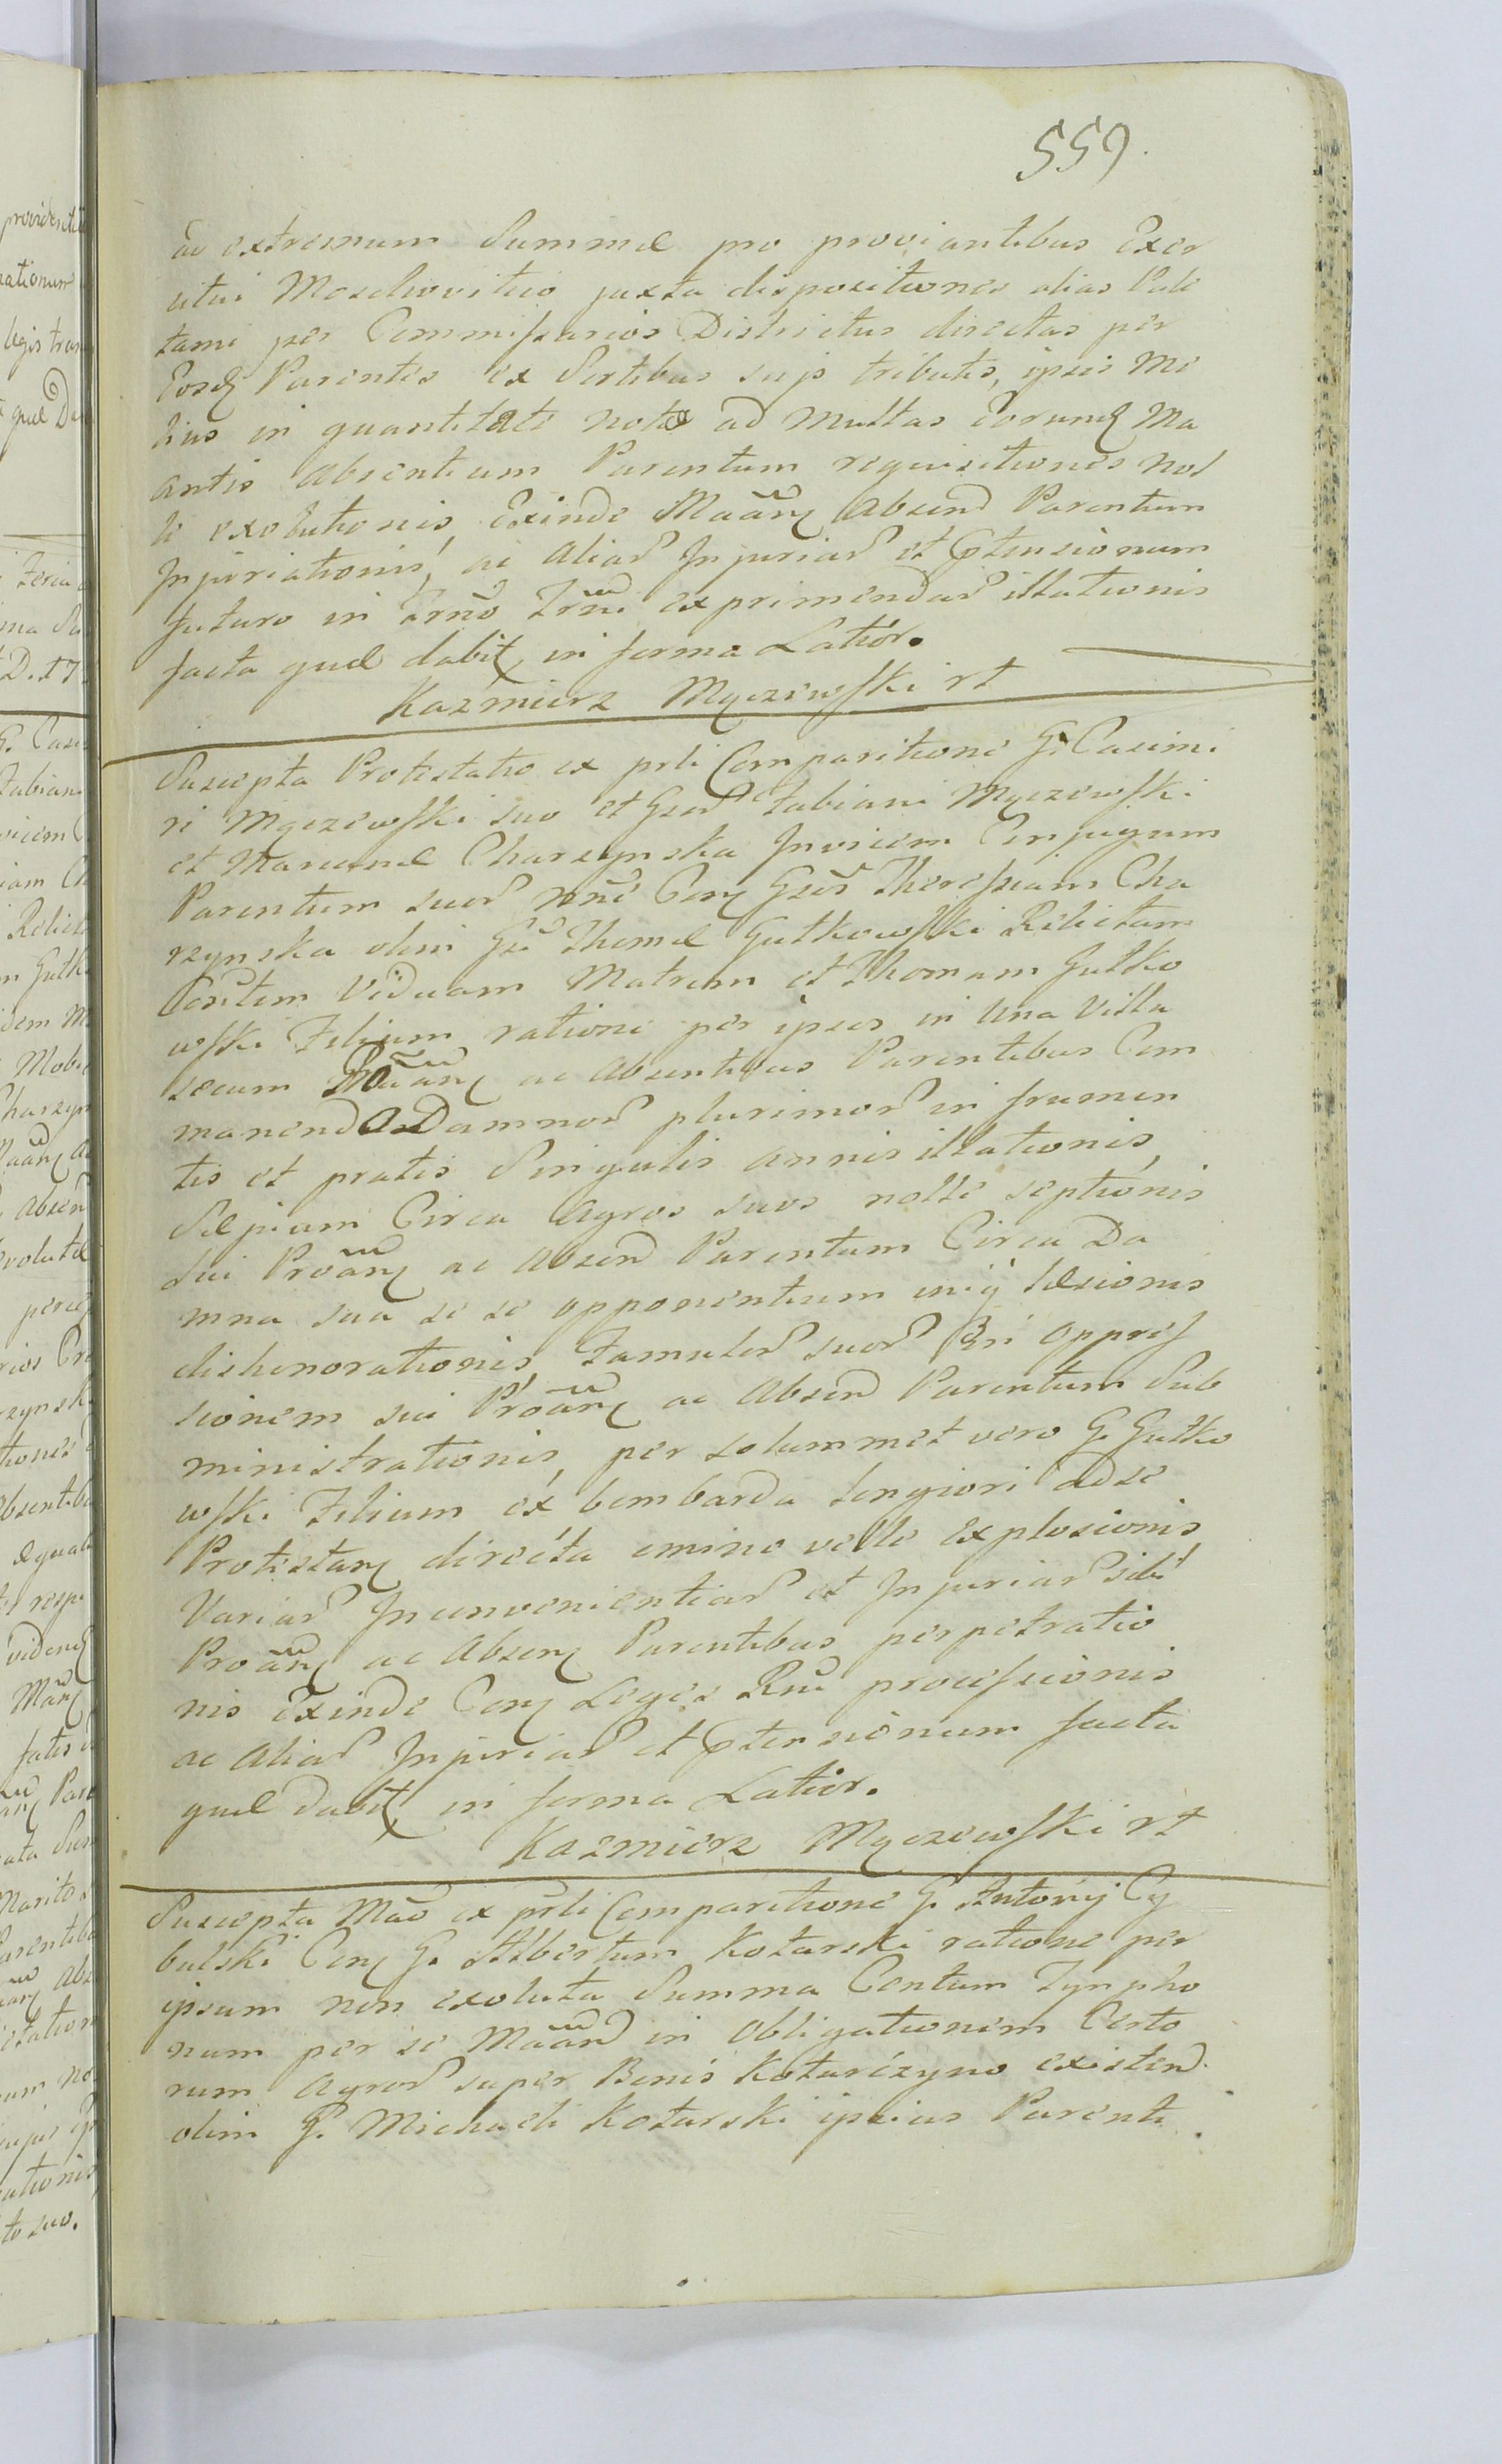 559.
ac extremum Summæ pro proviantibus Exer
citui Moschovitico juxta dispositiones alias Pale
tami per Commissarios Districtus directas per
Eosdē Parentes ex Sortibus suis tributis, ipsis Me
lius in quantitate notæ ad Multas Eorundē Ma
antis absentium Parentum requisitiones nol
le exolutionis, Exinde Mãañ absend Parentum
Injuriationis, ac aliar Injuriar et Ptensionum
futuro in Trño Trñi exprimendar illationis
facta quæ dabit, in forma Latior.
Kazmierz Mączewski rt
Suscepta Protestatio ex prli Comparitione G. Casimi
ri Mączewski suo et Gsor Fabiani Mączewski
et Mariannæ Charzynska Invicem Conjugum
Parentum suor noñe Con Gsōs Theressiam Cha
rzynska olim Gsi Thomæ Gutkowski Relictam
Consortem Viduam Matrem et Thomam Gutko
wski Filium ratione per ipsos in Una Villa
secum Proãañ ac Absentibus Parentibus Com
manend Damnor plurimor in frumen
tis et pratis Singulis annis illationis,
Sæpiam Circa Agros suos nolle septionis
Sui Proãañ ac Absend Parentum Circa Da
mna sua se se opponentium iniq læsionis
dishonorationis, Famulor suor In oppres
sionem sui Proãañ ac Absend Parentum Sub
ministrationis, per solummet vero G. Gutko
wski Filium ex bombarda longiori ad se
Protestanț directa emino velle explosionis
Variar Inconvenientiar et Injuriar sibi
Proãañ ac Absenț Parentibus perpetratio
nis Exinde Con Leges Rni processionis
ac Aliar Injuriar et Ptensionum facta
quæ dabit, in forma Latior.
Kazmierz Mączewski rt
Suscepta Mão ex prli Comparitione G. Antonij Cy
bulski Con G. Albertum Kotarski ratione per
ipsum non exoluta Summa Centum Tympho
num per se Mãand in Obligationem Certo
rum Agror super Bonis Kotarczyno existend
olim G. Michaeli Kotarski ipsius Parenti